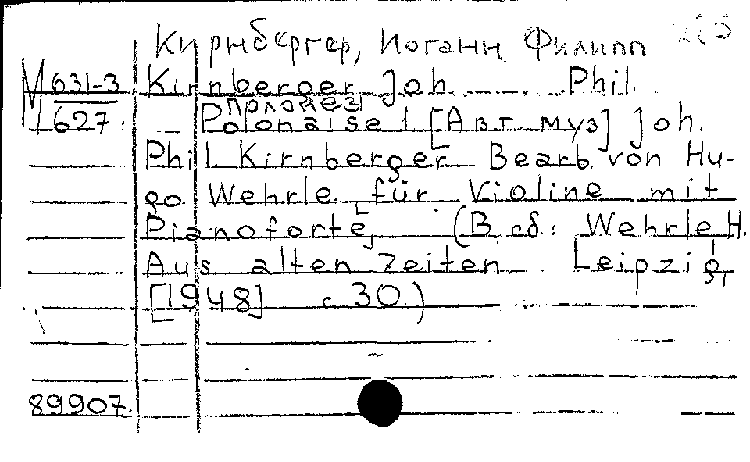 Кирнбергер, Иоганн Филипп
М 631-3 Kirnberger Joh. Phil.
Полонез
1627 Polonaise 1 [Авт. муз] Joh.
Phil. Kirnberger Bearb. von Hu-
go Wehrle für Violine mit
Pianoforte, (В сб: Wehrle H.
Aus alten Zeiten. Leipzig,
[1948] с 30)
89907